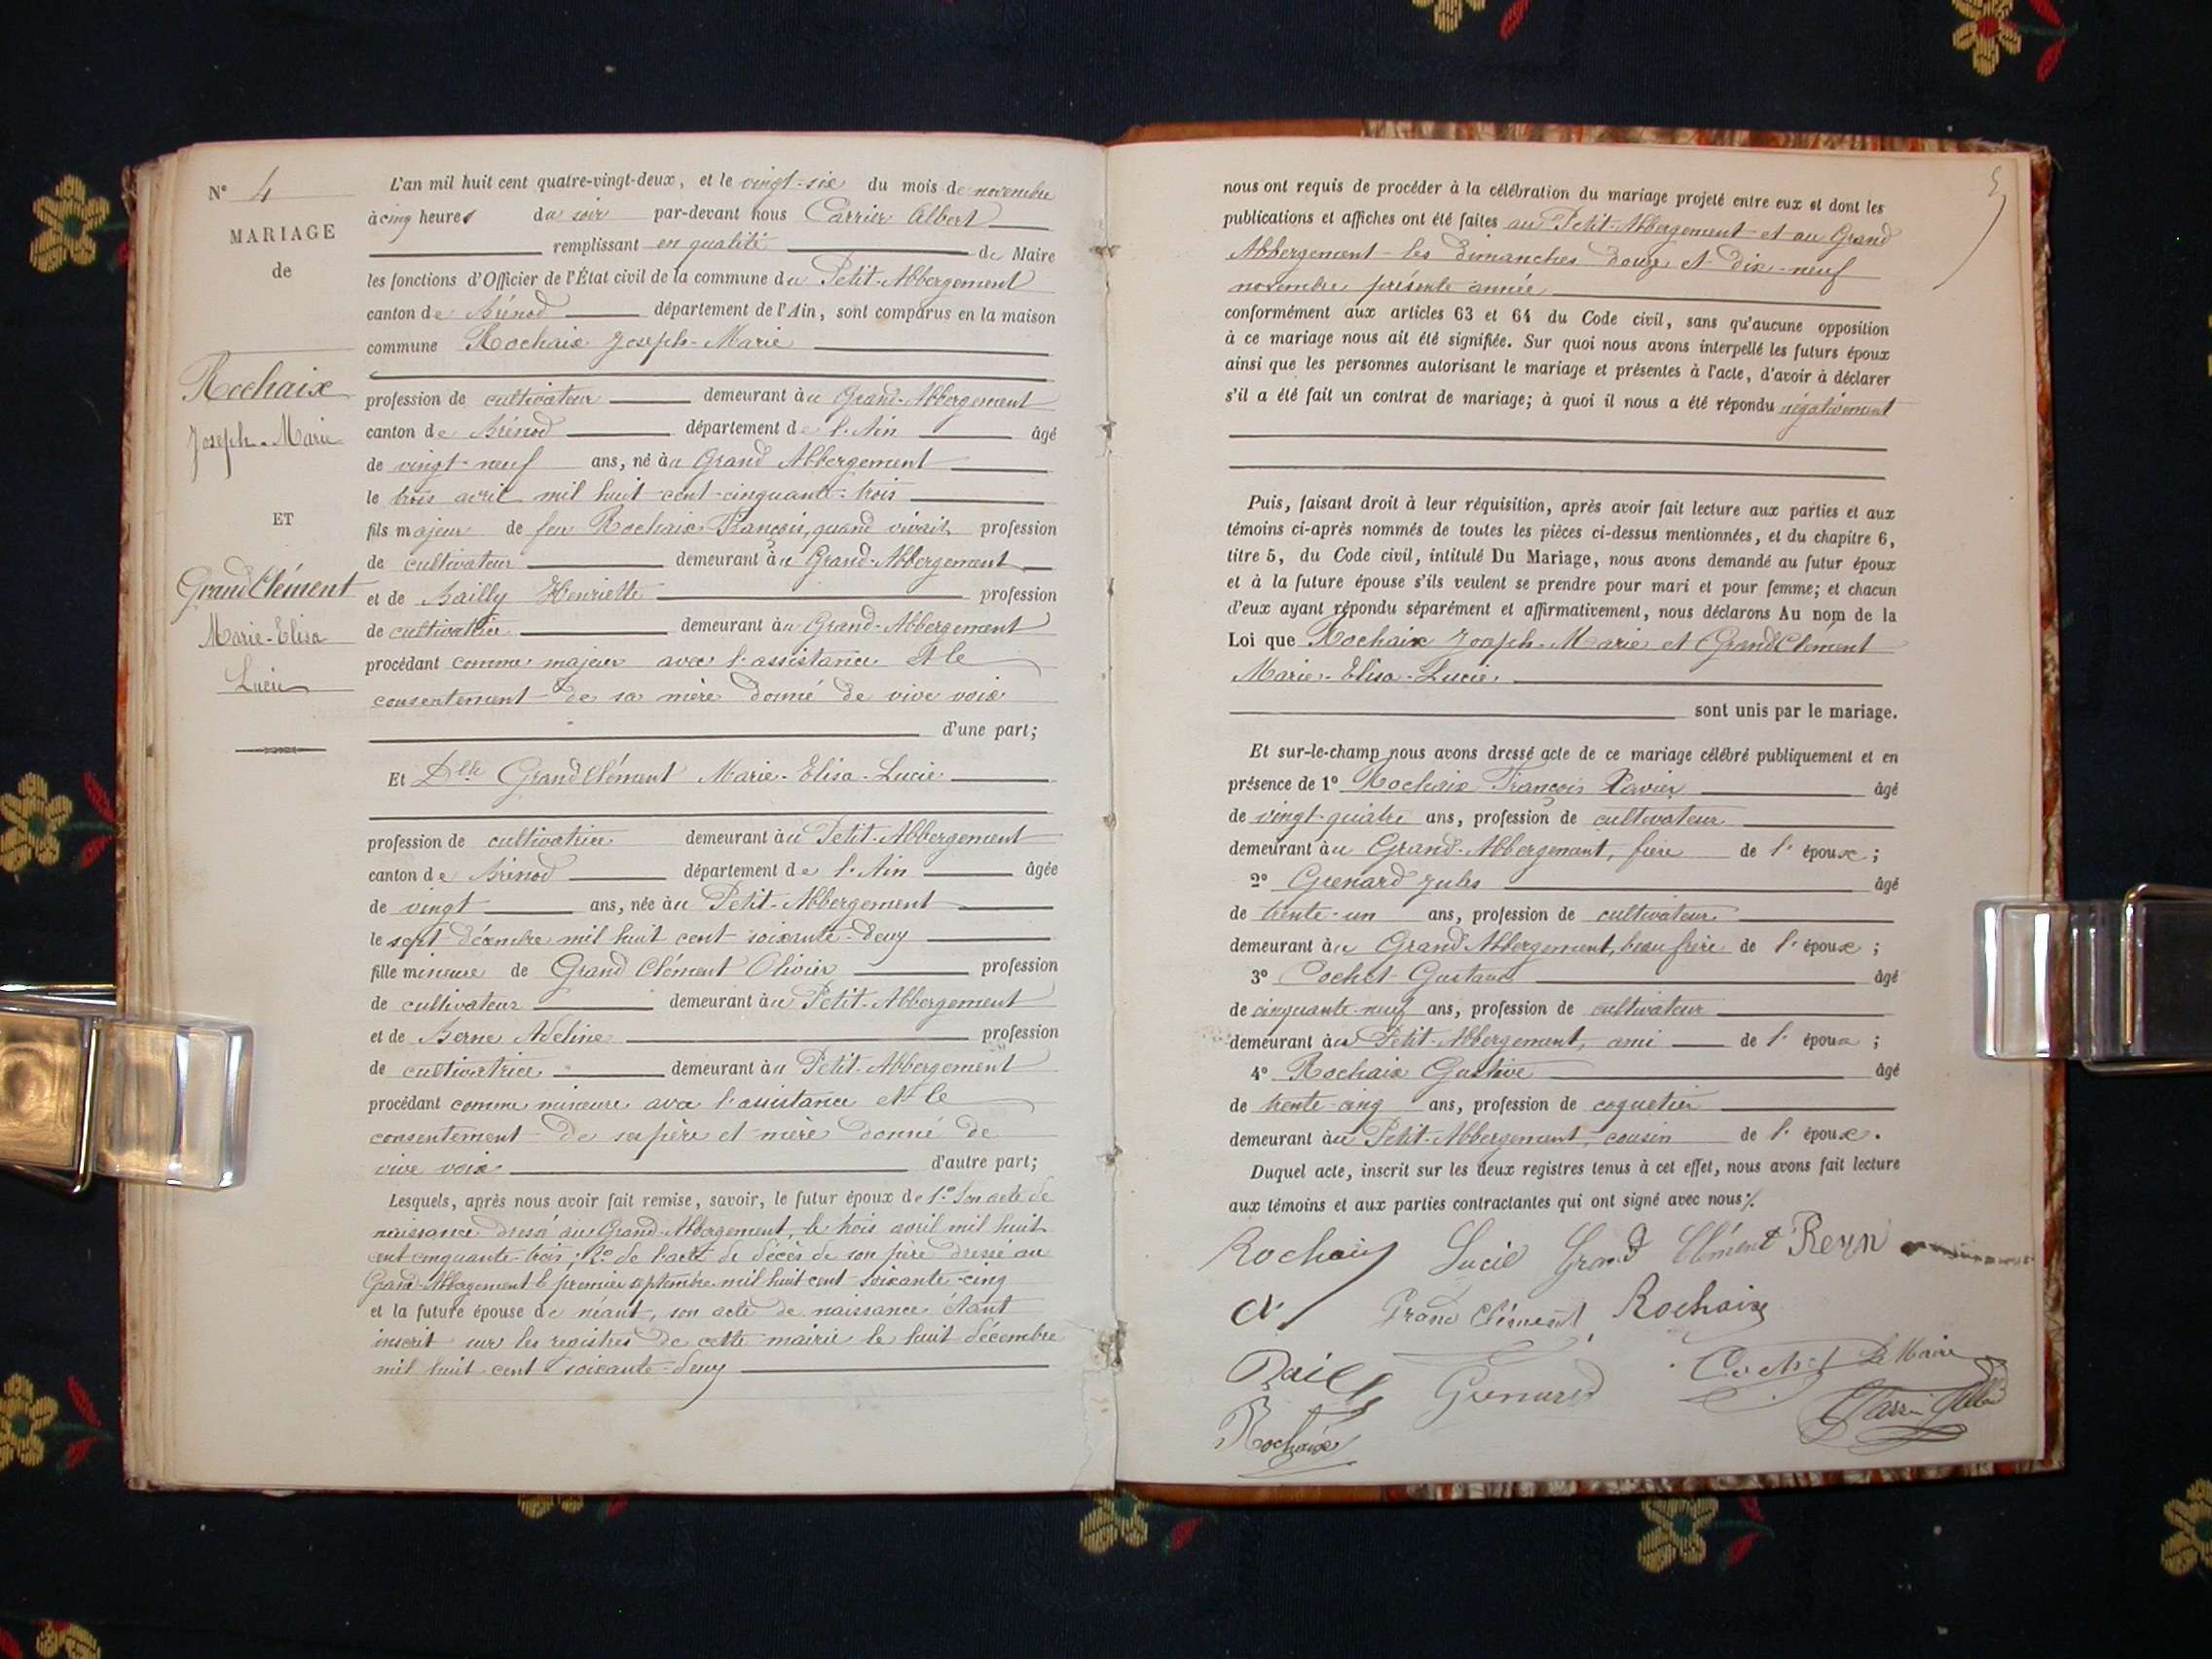 N° 4
MARIAGE
de
Rochaix
Joseph-Marie
ET
Grand Clément
Marie-Elisa
Lucie
L'an mil huit cent quatre-vingt-deux, et le vingt-six du mois de novembre
à cinq heures du soir par-devant nous Carrier Albert
remplissant en qualité de Maire
les fonctions d'Officier de l'État civil de la commune du Petit-Abbergement
canton de Brénod département de l'Ain, sont comparus en la maison
commune Rochaix Joseph-Marie
profession de cultivateur demeurant au Grand-Abbergement
canton de Brénod département de l'Ain âgé
de vingt-neuf ans, né au Grand Abbergement
le trois avril mil huit cent cinquante-trois
fils majeur de feu Rochaix François, quand vivait profession
de cultivateur demeurant au Grand-Abbergement
et de Bailly Henriette profession
de cultivatrice demeurant au Grand-Abbergement
procédant comme majeur avec l'assistance et le
consentement de sa mère donné de vive voix
d'une part;
Et Dlle Grand Clément Marie-Elisa-Lucie
profession de cultivatrice demeurant au Petit-Abbergement
canton de Brénod département de l'Ain âgée
de vingt ans, née au Petit-Abbergement
le sept décembre mil huit cent soixante-deux
fille mineure de Grand Clément Olivier profession
de cultivateur demeurant au Petit-Abbergement
et de Berne Adeline profession
de cultivatrice demeurant au Petit-Abbergement
procédant comme mineure avec l'assistance et le
consentement de ses père et mère donné de
vive voix d'autre part;
Lesquels, après nous avoir fait remise, savoir, le futur époux de 1° Son acte de
naissance dressé au Grand-Abbergement, le trois avril mil huit
cent cinquante-trois; 2° de l'acte de décès de son père dressé au
Grand-Abbergement le premier septembre mil huit cent soixante-cinq
et la future épouse de néant, son acte de naissance étant
inscrit sur les registres de cette mairie le huit décembre
mil huit cent soixante-deux
5
nous ont requis de procéder à la célébration du mariage projeté entre eux et dont les
publications et affiches ont été faites au Petit-Abbergement et au Grand
Abbergement les dimanches douze et dix-neuf
novembre présente année
conformément aux articles 63 et 64 du Code civil, sans qu'aucune opposition
à ce mariage nous ait été signifiée. Sur quoi nous avons interpellé les futurs époux
ainsi que les personnes autorisant le mariage et présentes à l'acte, d'avoir à déclarer
s'il a été fait un contrat de mariage; à quoi il nous a été répondu négativement
Puis, faisant droit à leur réquisition, après avoir fait lecture aux parties et aux
témoins ci-après nommés de toutes les pièces ci-dessus mentionnées, et du chapitre 6,
titre 5, du Code civil, intitulé Du Mariage, nous avons demandé au futur époux
et à la future épouse s'ils veulent se prendre pour mari et pour femme; et chacun
d'eux ayant répondu séparément et affirmativement, nous déclarons Au nom de la
Loi que Rochaix Joseph-Marie et Grand Clément
Marie-Elisa-Lucie
sont unis par le mariage.
Et sur-le-champ nous avons dressé acte de ce mariage célébré publiquement et en
présence de 1° Rochaix François Xavier âgé
de vingt-quatre ans, profession de cultivateur
demeurant au Grand-Abbergement, frère de l'époux;
2° Grenard Jules âgé
de trente-un ans, profession de cultivateur
demeurant au Grand Abbergement, beau frère de l'époux;
3° Cochet Gustave âgé
de cinquante-neuf ans, profession de cultivateur
demeurant au Petit-Abbergement, ami de l'époux;
4° Rochaix Gustave âgé
de trente-cinq ans, profession de coquetier
demeurant au Petit-Abbergement, cousin de l'époux.
Duquel acte, inscrit sur les deux registres tenus à cet effet, nous avons fait lecture
aux témoins et aux parties contractantes qui ont signé avec nous./.
Rochaix Lucie Grand Clément
Grand Clément Rochaix
Grenard Cochet Le Maire
Rochaix Carrier Albert